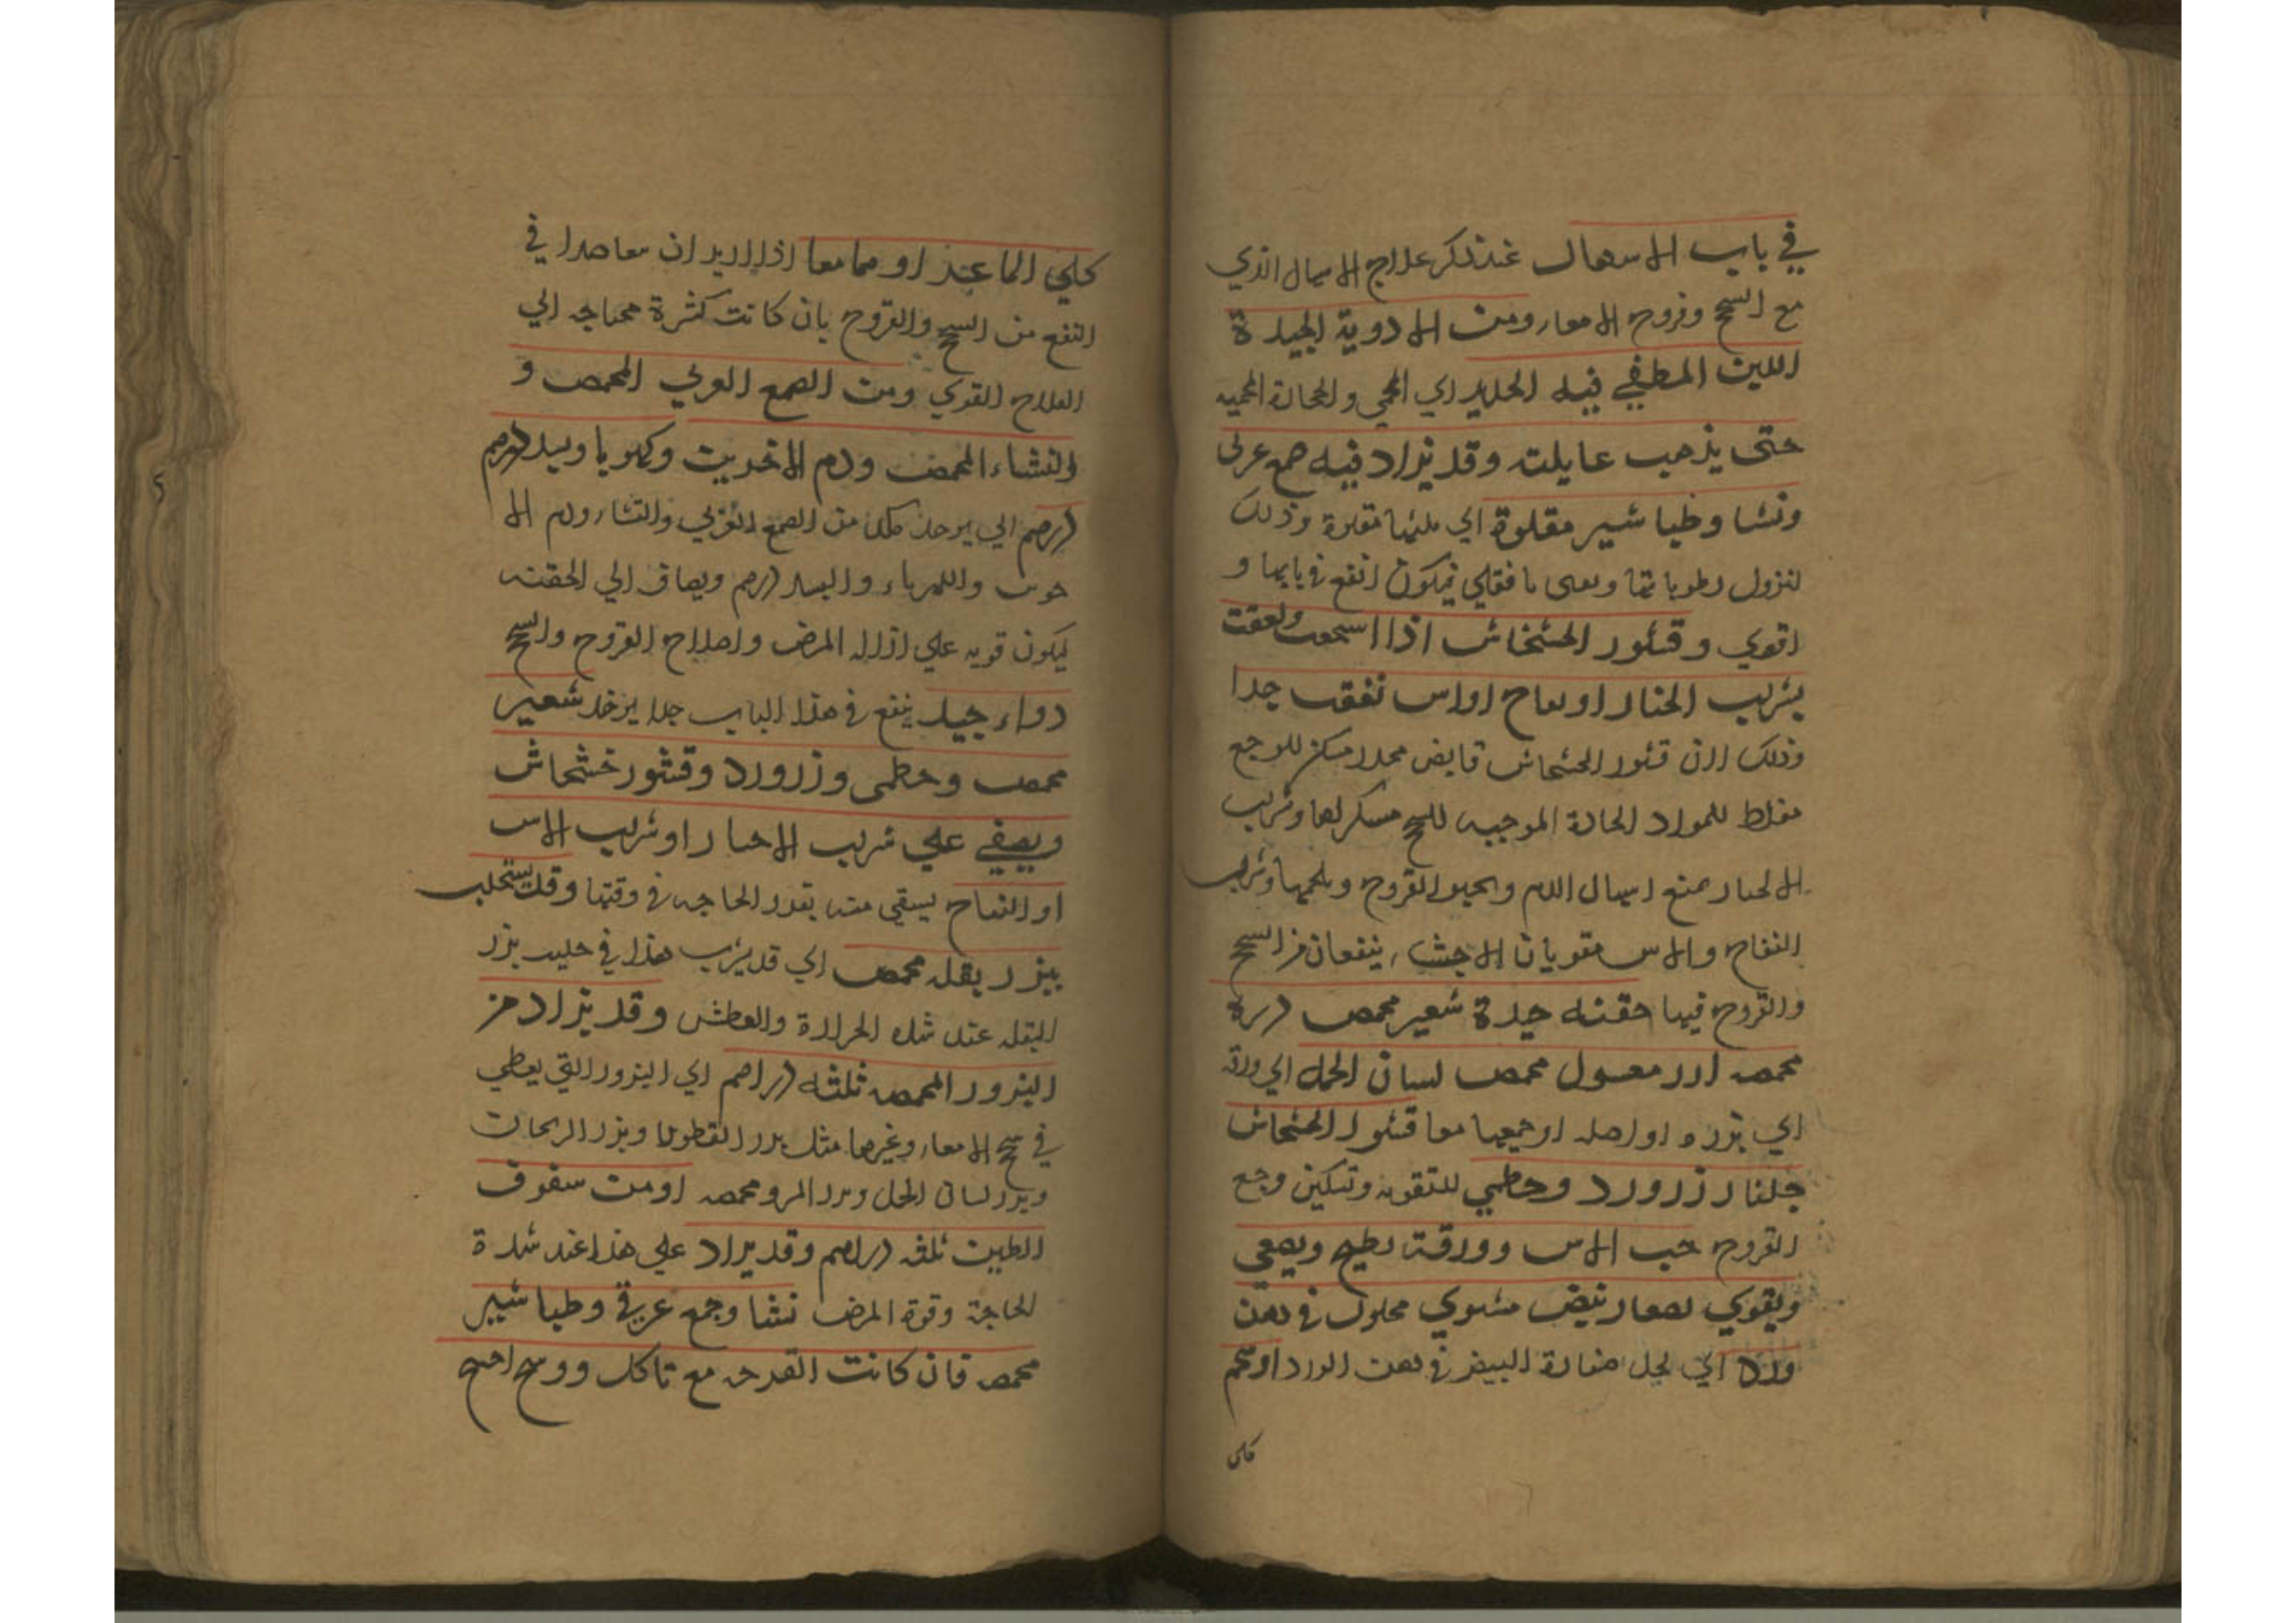 في باب الاسهال عند ذكر علاج الاسهال الذي
مع السحج وقروح الامعاء ومن الادوية الجيدة
اللبن المطفي فيه الحديد اي المحمي والحجارة المحميه
حتى يذهب مايلته وقد يزاد فيه صمع عربي
ونشا وطباشير مقلوة اي كلها مقلوة وذلك
لنزول رطوباتها وبقي فيكون انفع في بابها و
اقوي وقشور الخشخاش اذا اسحقت ولعقت
بشرب الجلنار او تفاح او اس نفعت جدا
وذلك لان قشور الخشخاش قابض مخدر مسكن للوجع
مغلظ للمواد الحادة الموجبه للسحج مسكن لها وشرب
الجلنار يمنع اسهال الدم القروح ويلحمها وشراب
التفاح والاس مقويان الاحشاء ينفعان من السحج
والقروح فيها حقنه جيدة شعير محمص درة
محمصه ارز مغسول محمص لسان الحمل اي ورقه
اي بزره او اصله او جميعها معا قشور الخشخاش
جلنار زرورد وخطمي للتقويه وتسكين وجع
القروح حب الاس وورقه يطبخ ويصفي
ويقوي بصفار بيض مشوي محلول في دهن
ورد اي يحل صفارة البيض في دهن الورد او شحم
كلي
كلي الماعز او هما معا اذا اريد ان معاضدا في
النفع من السحج والقروح بان كانت كثرة محتاجه الي
العلاج القوي ومن الصمع العربي المحمص و
النشاء المحمص ودم الاخوين وكهربا وبسد درهم
درهم اي يوخذ كل من الصمع العربي والنشاء ودم الا
خوين والكهرباء والبسد درهم ويضاف الي الحقنه
ليكون قويه علي ازاله المرض واصلاح القروح والسحج
دواء جيد ينفع في هذا الباب جدا يوخذ شعير
محمص وخطمي وزرورد وقشور خشخاش
ويصفي علي شرب الاجبار او شرب الاس
او التفاح يسقي منه بقدر الحاجه في وقتها وقد يستحلب
ببزر بقله محمص اي قد يشرب هذا في حليب بزر
البقله عند شده الحرارة والعطش وقد يزاد من
البزور المحمصه ثلثه دراهم اي البزور التي يعطي
في سحج الامعاء وغيرها مثل بزر القطونا وبزر الريحان
وبزر لسان الحمل وبزر المرو محمصه او من سفوف
الطين ثلثه دراهم وقد يزاد علي هذا عند شدة
الحاجة وقوة المرض نشا وجمع عربي وطباشير
محمصه فان كانت القرحه مع تاكل ووسخ احتج